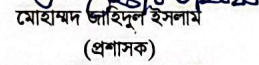 মোহাম্মদ জাহিদুল ইসলাম
(প্রশাসক)